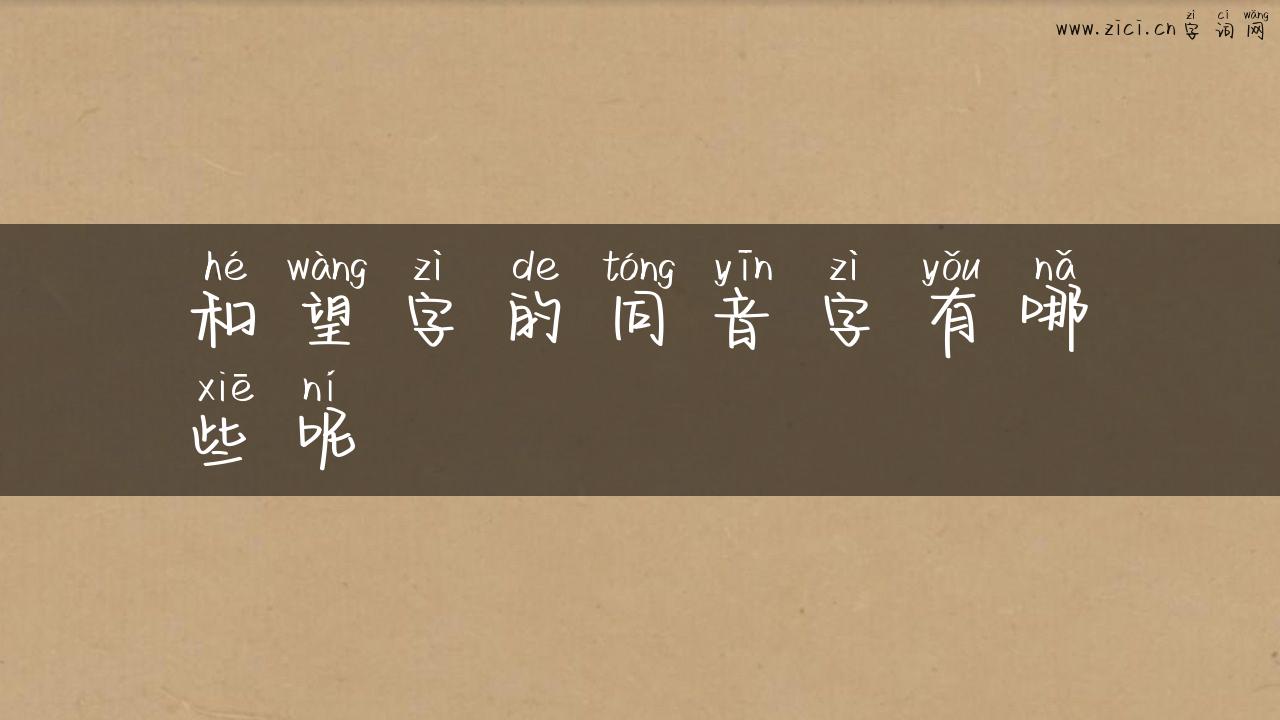 zì cí wǎng
www.zici.cn 字词网
hé wàng zì de tóng yīn zì yǒu nǎ
和望字的同音字有哪
xiē ní
些呢